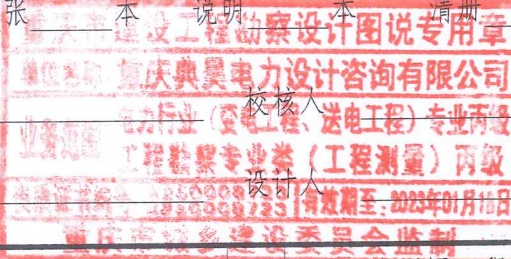 张 本 说明 本 清册
重庆市建设工程勘察设计图说专用章
单位名称 重庆典昊电力设计咨询有限公司
校核人
业务范围 电力行业（变电工程、送电工程）专业丙级
工程勘察专业类（工程测量）丙级
设计人
有效期至：2023年01月18日
重庆市城乡建设委员会监制